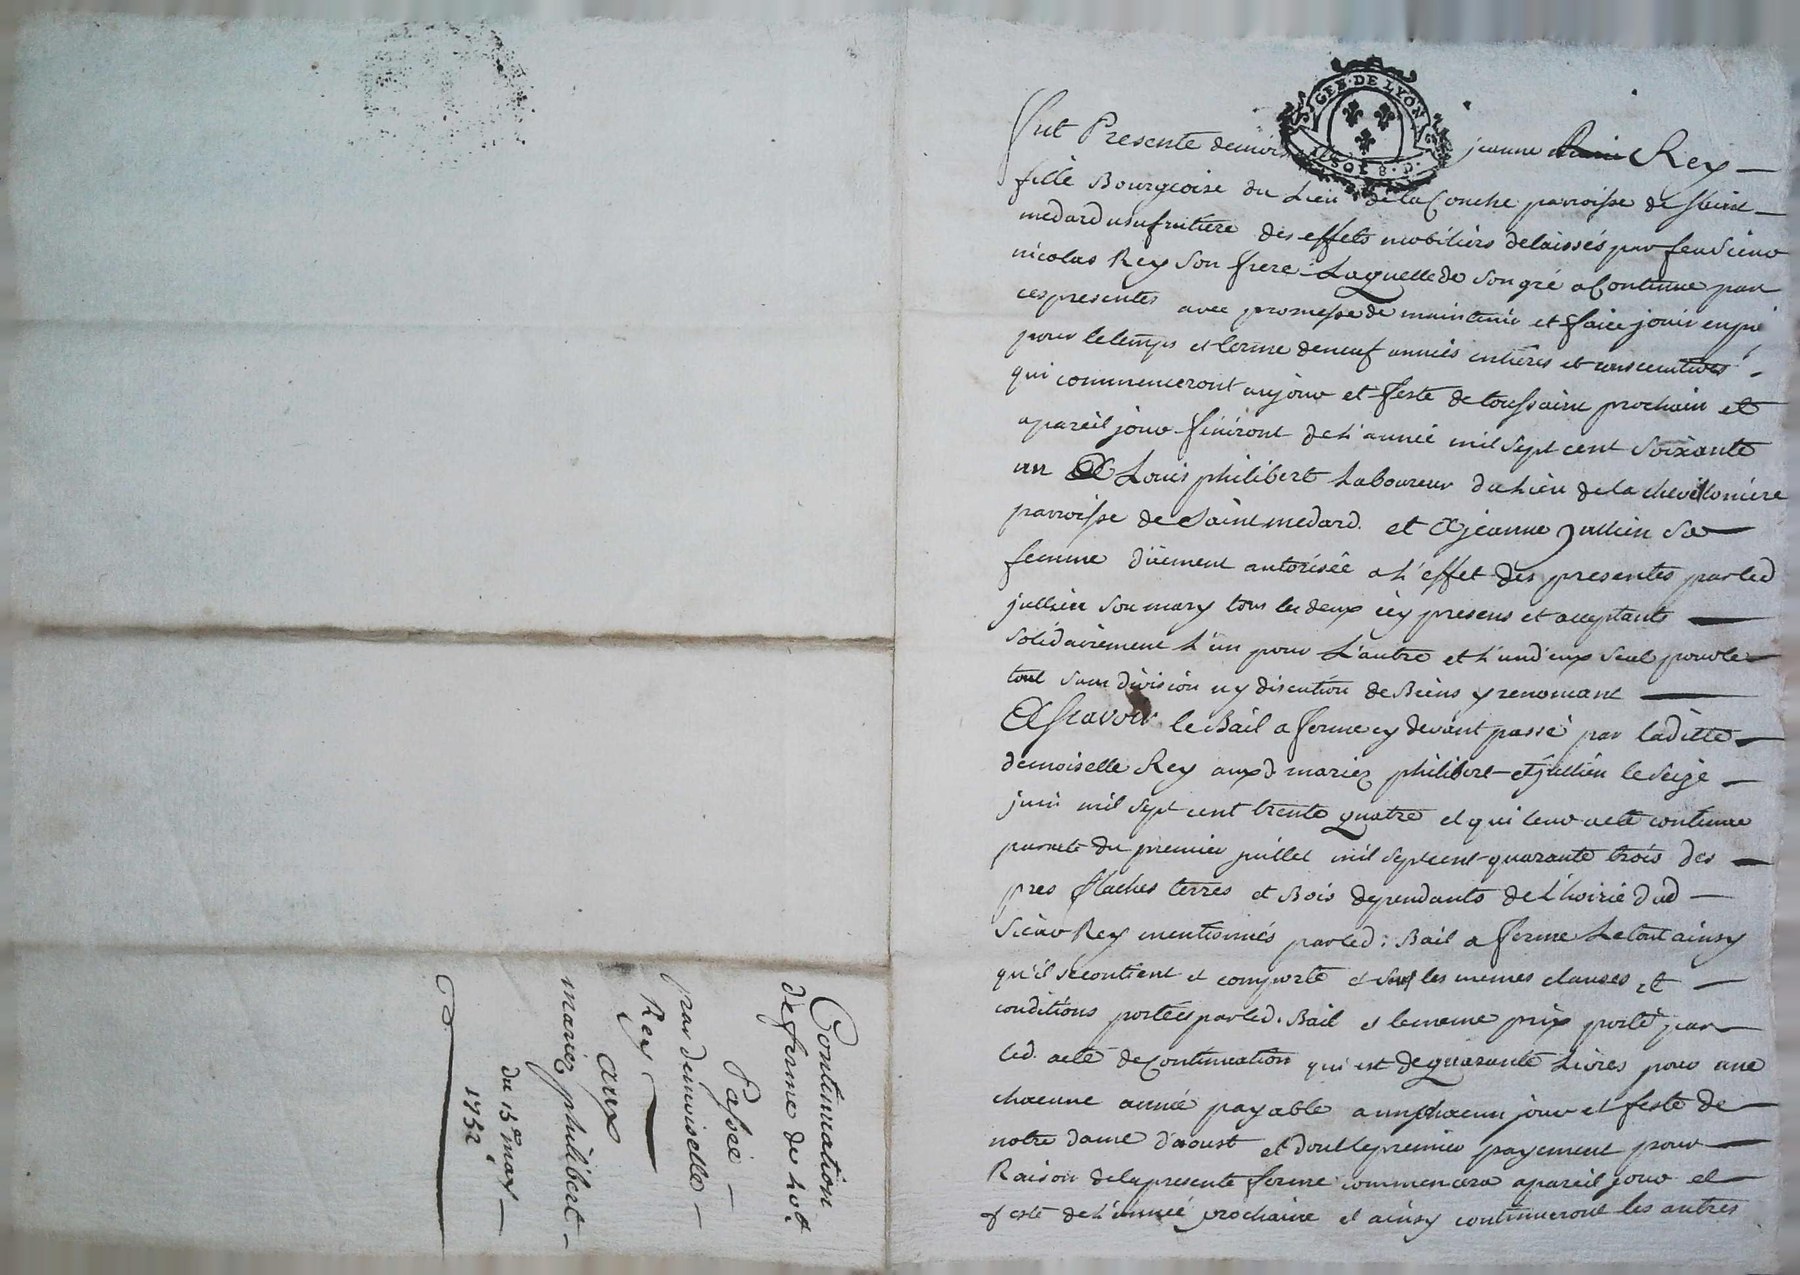 GEN. DE LYON
Fut Presente demoiselle jeanne Rey
fille Bourgeoise du Lieu de la Conche parroisse de Saint
medard usufruitiere des effets mobiliers delaissés par feu Sieur
nicolas Rey Son frere Laquelle de Son gré a Continué par
ces presentes avec promesse de maintenir et faire jouir
pour le temps et terme de neuf années entieres et consecutives
qui commenceront au jour et feste de toussaint prochain et
a pareil jour finiront de L'année mil sept cent Soixante
un A Louis philibert Laboureur du Lieu de la chevilloniere
parroisse de Saint medard et A jeanne Jullien Sa
femme düement autorisée a L'effet des presentes par led
jullien Son mary tous les deux icy presens et acceptants
Solidairement L'un pour L'autre et L'un d'eux Seul pour le
tout Sans division ny discution de Biens y renonçant
A Scavoir le Bail a ferme cy devant passé par laditte
demoiselle Rey auxd mariez philibert et jullien le Seize
juin mil sept cent trente quatre et qui leur a eté continué
par acte du premier juillet mil sept cent quarante trois des
pres flaches terres et Bois dependants de L'hoirie dud
Sieur Rey mentionnés par led. Bail a ferme Le tout ainsy
qu'il se contient et comporte et sous les memes clauses et
conditions portées par led. Bail et le meme prix porté par
led. acte de Continuation qui est de quarante Livres pour une
chacune année payable a un chacun jour et feste de
notre dame d'aoust et dont le premier payement pour
Raison de la presente ferme commencera a pareil jour et
feste de L'année prochaine et ainsy continueront les autres
Continuation
de ferme de 40tt.
Passée
par demoiselle
Rey
aux
mariez philibert
du 15e may
1752